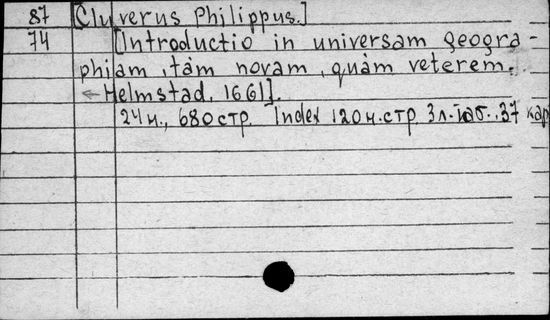 87 [Cluverus Philippus.]
74 [Introductio in universam geogra-
phiam, tàm novam, quàm veterem.
Helmstad, 1661].
24 н., 680 стр. Index 120 н. стр. 3 л. таб., 37 кар